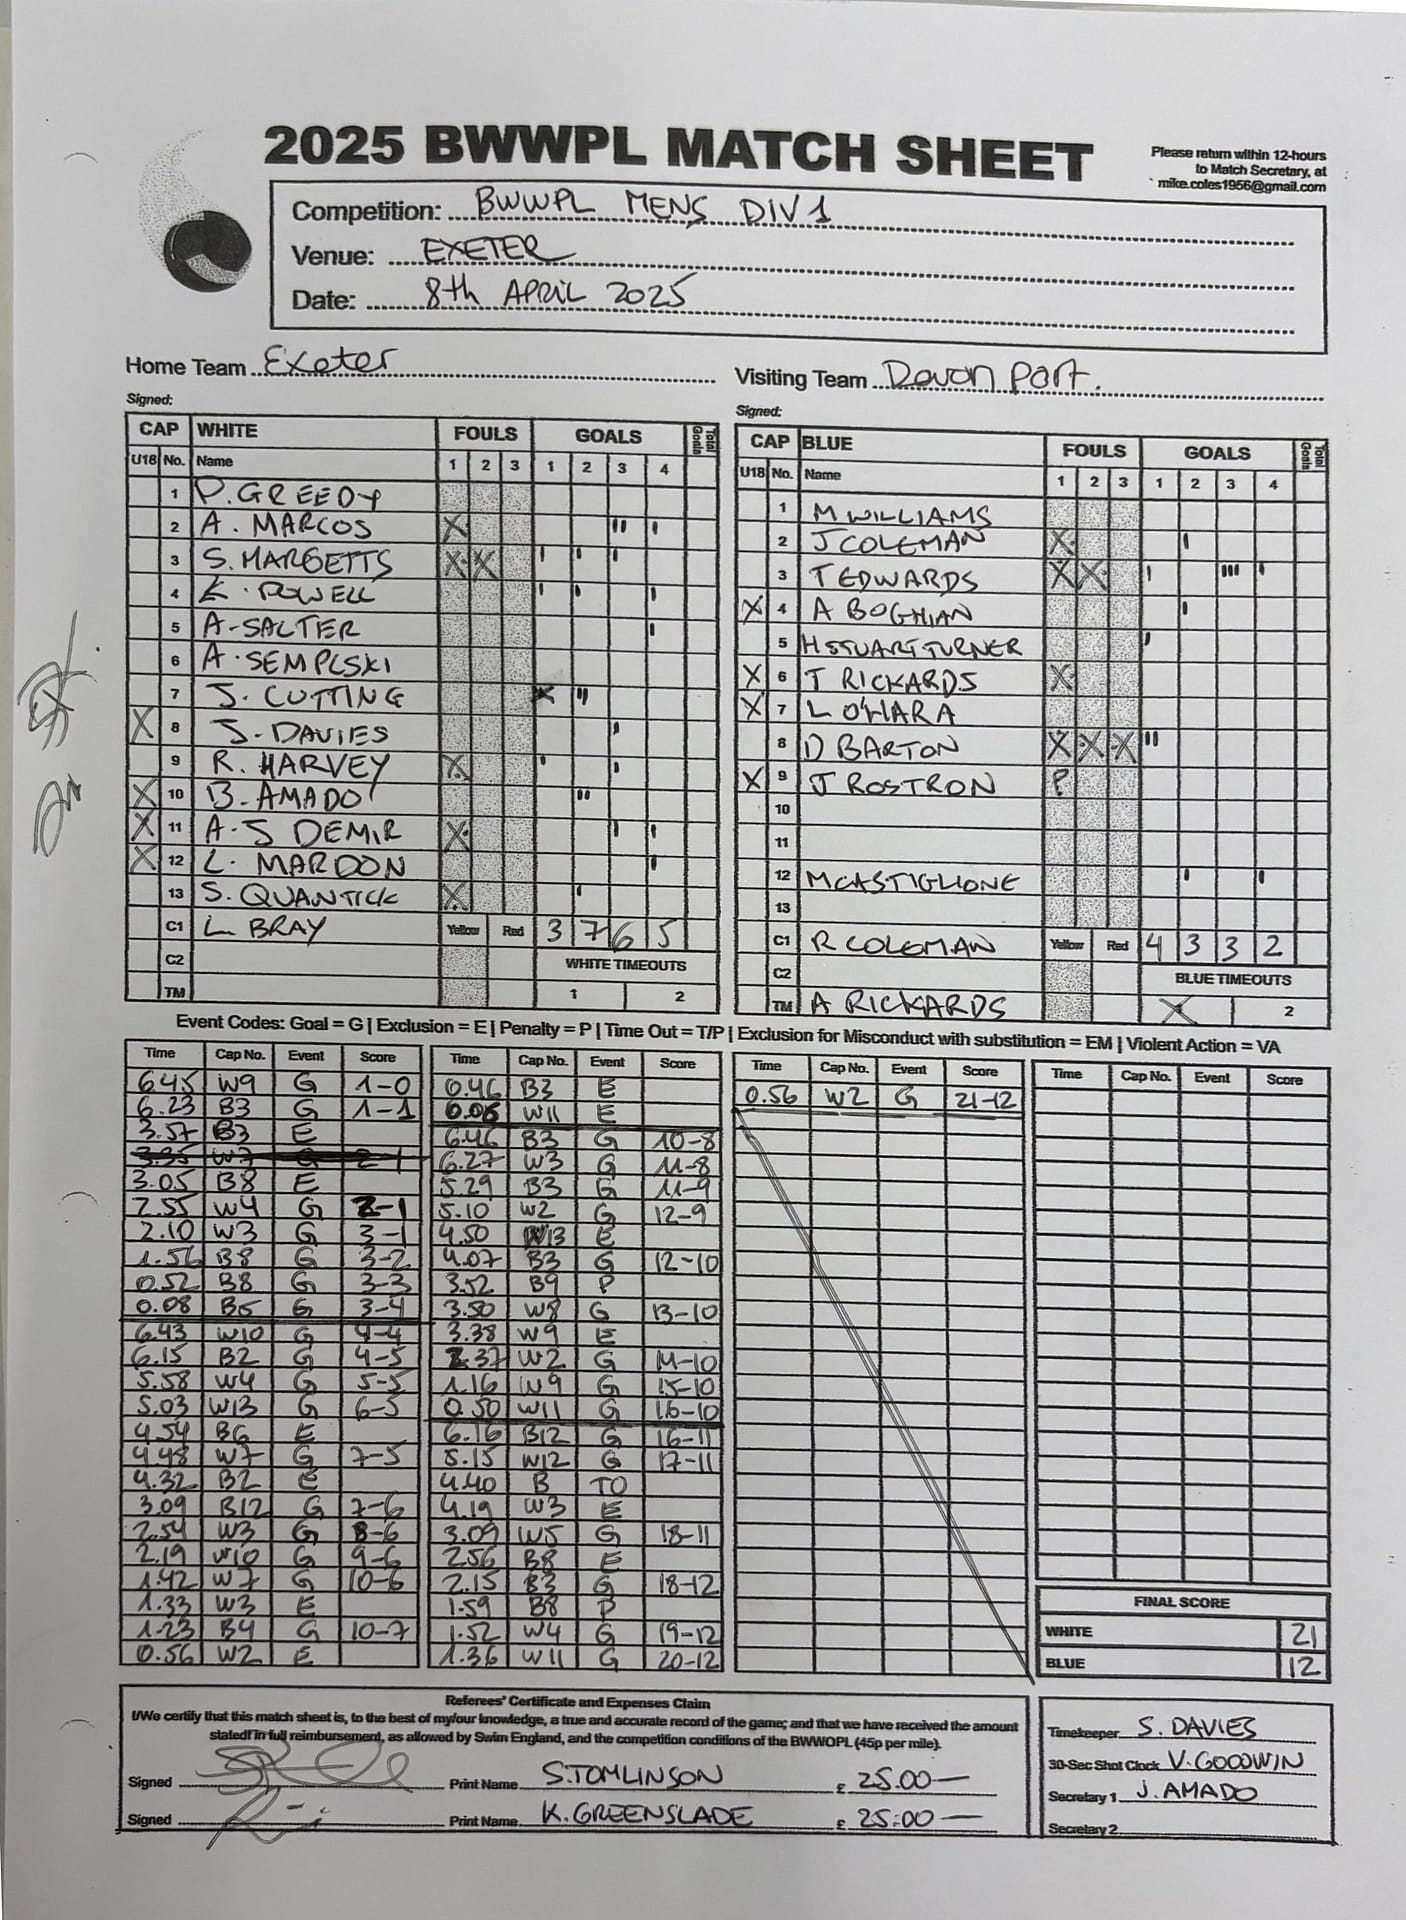 2025 BWWPL MATCH SHEET
Please return within 12-hours
to Match Secretary, at
mike.coles1956@gmail.com
Competition: BWWPL MENS DIV 1
Venue: EXETER
Date: 8th APRIL 2025
Home Team Exeter
Signed:
CAP WHITE FOULS GOALS Total Goals
U18 No. Name 1 2 3 1 2 3 4
1 P. GREEDY
2 A. MARCOS X II I
3 S. MARGETTS X X I I I
4 K. POWELL I I I
5 A-SALTER I
6 A. SEMPLSKI
7 J. CUTTING II
X 8 J. DAVIES I
9 R. HARVEY X I I
X 10 B. AMADO II
X 11 A-J DEMIR X I I
X 12 L. MARDON I
13 S. QUANTICK X I
C1 L. BRAY Yellow Red 3 7 6 5
C2 WHITE TIMEOUTS
TM 1 2
Visiting Team Devon Port.
Signed:
CAP BLUE FOULS GOALS Total Goals
U18 No. Name 1 2 3 1 2 3 4
1 M WILLIAMS
2 J COLEMAN X I
3 T EDWARDS X X I III I
X 4 A BOGHIAN I
5 H STUART TURNER I
X 6 T RICKARDS X
X 7 L O'HARA
8 D BARTON X X X II
X 9 J ROSTRON P
10
11
12 M CASTIGLIONE I I
13
C1 R COLEMAN Yellow Red 4 3 3 2
C2 BLUE TIMEOUTS
TM A RICKARDS X 2
Event Codes: Goal = G | Exclusion = E | Penalty = P | Time Out = T/P | Exclusion for Misconduct with substitution = EM | Violent Action = VA
Time Cap No. Event Score
6.45 W9 G 1-0
6.23 B3 G 1-1
3.57 B3 E
3.35 W7 G 2-1
3.05 B8 E
2.55 W4 G 2-1
2.10 W3 G 3-1
1.56 B8 G 3-2
0.52 B8 G 3-3
0.08 B5 G 3-4
6.43 W10 G 4-4
6.15 B2 G 4-5
5.58 W4 G 5-5
5.03 W13 G 6-5
4.54 B6 E
4.48 W7 G 7-5
4.32 B2 E
3.09 B12 G 7-6
2.54 W3 G 8-6
2.19 W10 G 9-6
1.42 W7 G 10-6
1.33 W3 E
1.23 B4 G 10-7
0.56 W2 E
Time Cap No. Event Score
0.46 B3 E
0.06 W11 E
6.46 B3 G 10-8
6.27 W3 G 11-8
5.29 B3 G 11-9
5.10 W2 G 12-9
4.50 W13 E
4.07 B3 G 12-10
3.52 B9 P
3.50 W8 G 13-10
3.38 W9 E
2.37 W2 G 14-10
1.16 W9 G 15-10
0.50 W11 G 16-10
6.16 B12 G 16-11
5.15 W12 G 17-11
4.40 B TO
4.19 W3 E
3.09 W5 G 18-11
2.56 B8 E
2.15 B3 G 18-12
1.59 B8 P
1.52 W4 G 19-12
1.36 W11 G 20-12
Time Cap No. Event Score
0.56 W2 G 21-12
Time Cap No. Event Score
FINAL SCORE
WHITE 21
BLUE 12
Referees' Certificate and Expenses Claim
I/We certify that this match sheet is, to the best of my/our knowledge, a true and accurate record of the game; and that we have received the amount
stated in full reimbursement, as allowed by Swim England, and the competition conditions of the BWWOPL (45p per mile).
Signed Print Name S. TOMLINSON £ 25.00 —
Signed Print Name K. GREENSLADE £ 25.00 —
Timekeeper S. DAVIES
30-Sec Shot Clock V. GOODWIN
Secretary 1 J. AMADO
Secretary 2